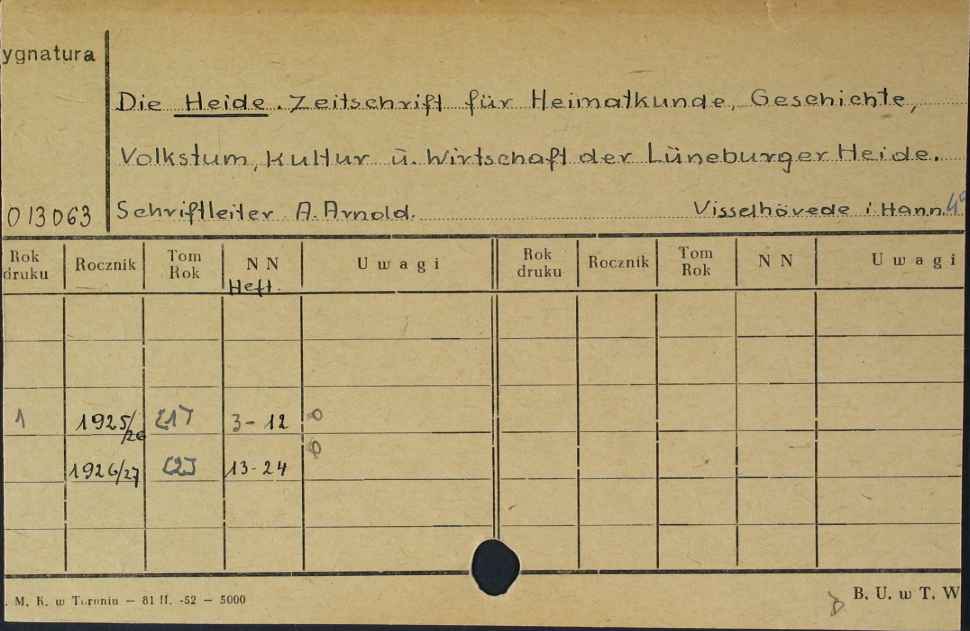 ygnatura
Die Heide. Zeitschrift für Heimatkunde, Geschichte,
Volkstum, Kultur u. Wirtschaft der Lüneburger Heide.
013063 Schriftleiter A. Arnold. Visselhövede i Hann. 4°
Rok druku Rocznik Tom Rok N N Uwagi Rok druku Rocznik Tom Rok N N Uwagi
Heft.
1 1925/26 [1] 3-12
1926/27 [2] 13-24
. M. K. w Toruniu — 81 II. -52 — 5000 B. U. w T. W